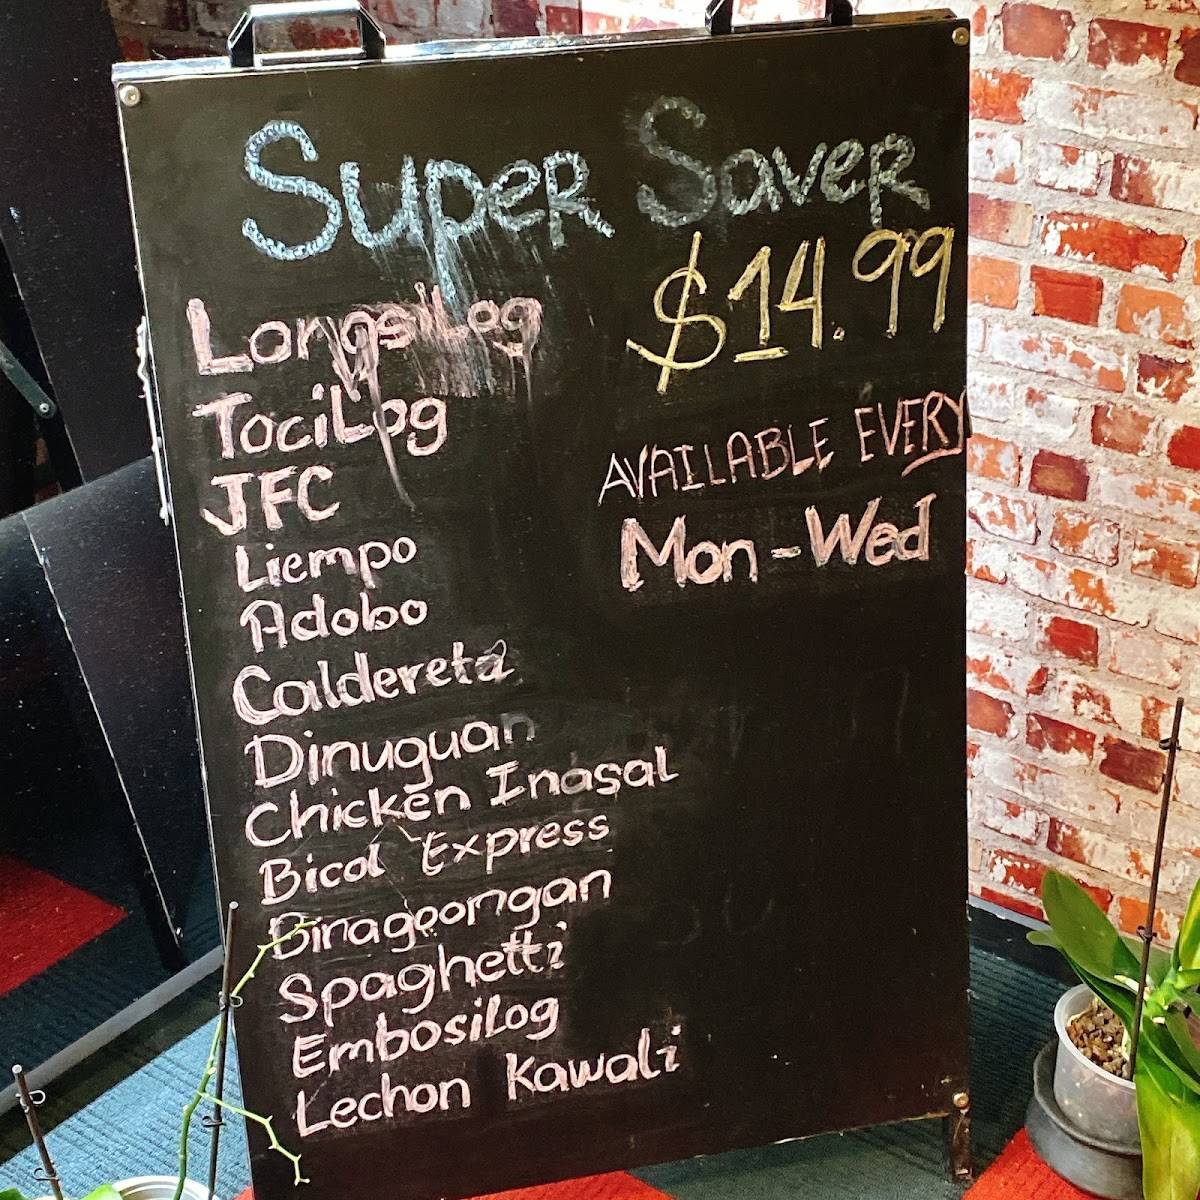 Super Saver
$14.99
AVAILABLE EVERY
Mon - Wed
LongsiLog
TociLog
JFC
Liempo
Adobo
Caldereta
Dinuguan
Chicken Inasal
Bicol Express
Binagoongan
Spaghetti
EmbosiLog
Lechon Kawali